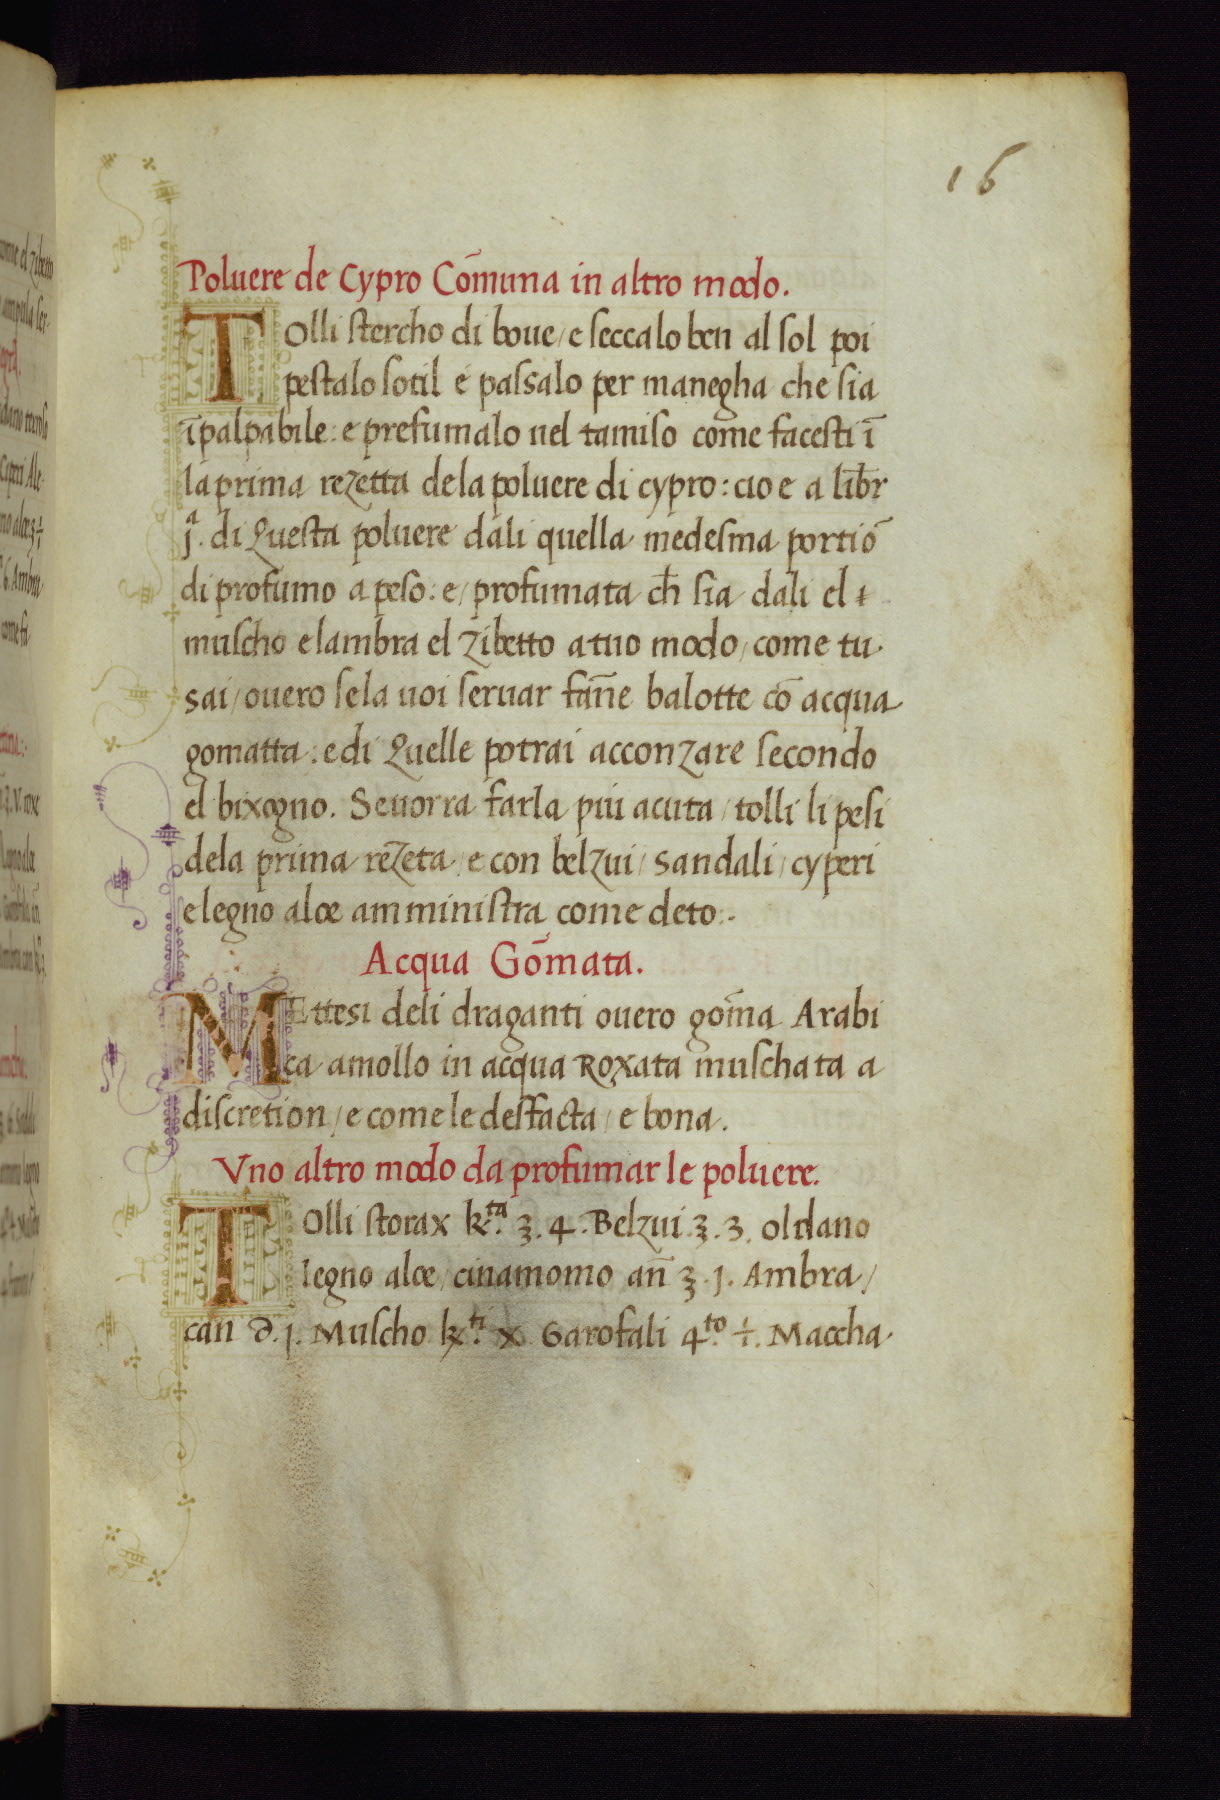 16
Poluere de Cypro Cōmuna in altro modo.
Tolli stercho di boue / e seccalo ben al sol poi
pestalo sotil e passalo per manegha che sia
īpalpabile : e prefumalo nel tamiso come facesti ī
la prima rezetta de la poluere di cypro : cio e a libr
j.ª di Questa poluere dali quella medesma portiō
di profumo a peso : e / profumata ch̄ sia dali el
muscho e lambra el zibetto a tuo modo / come tu
sai / ouero se la uoi seruar fan̄e balotte cō acqua
gomatta : e di Quelle potrai acconzare secondo
el bixogno. Se uorra farla piu acuta / tolli li pesi
dela prima rezeta / e con belzui / sandali / cyperi
e legno aloe amministra come deto.
Acqua Gōmata.
MEttesi deli draganti ouero gom̄a Arabi
ca amollo in acqua Roxata muschata a
discretion / e come le desfacta / e bona.
Vno altro modo da profumar le poluere.
TOlli storax k.ta ʒ. 4. Belzui. ʒ. 3. oldano
legno aloe / cinamomo an̄ ʒ. j. Ambra /
can ∂. j. Muscho k.ti x Garofali 4.to ÷. Maccha